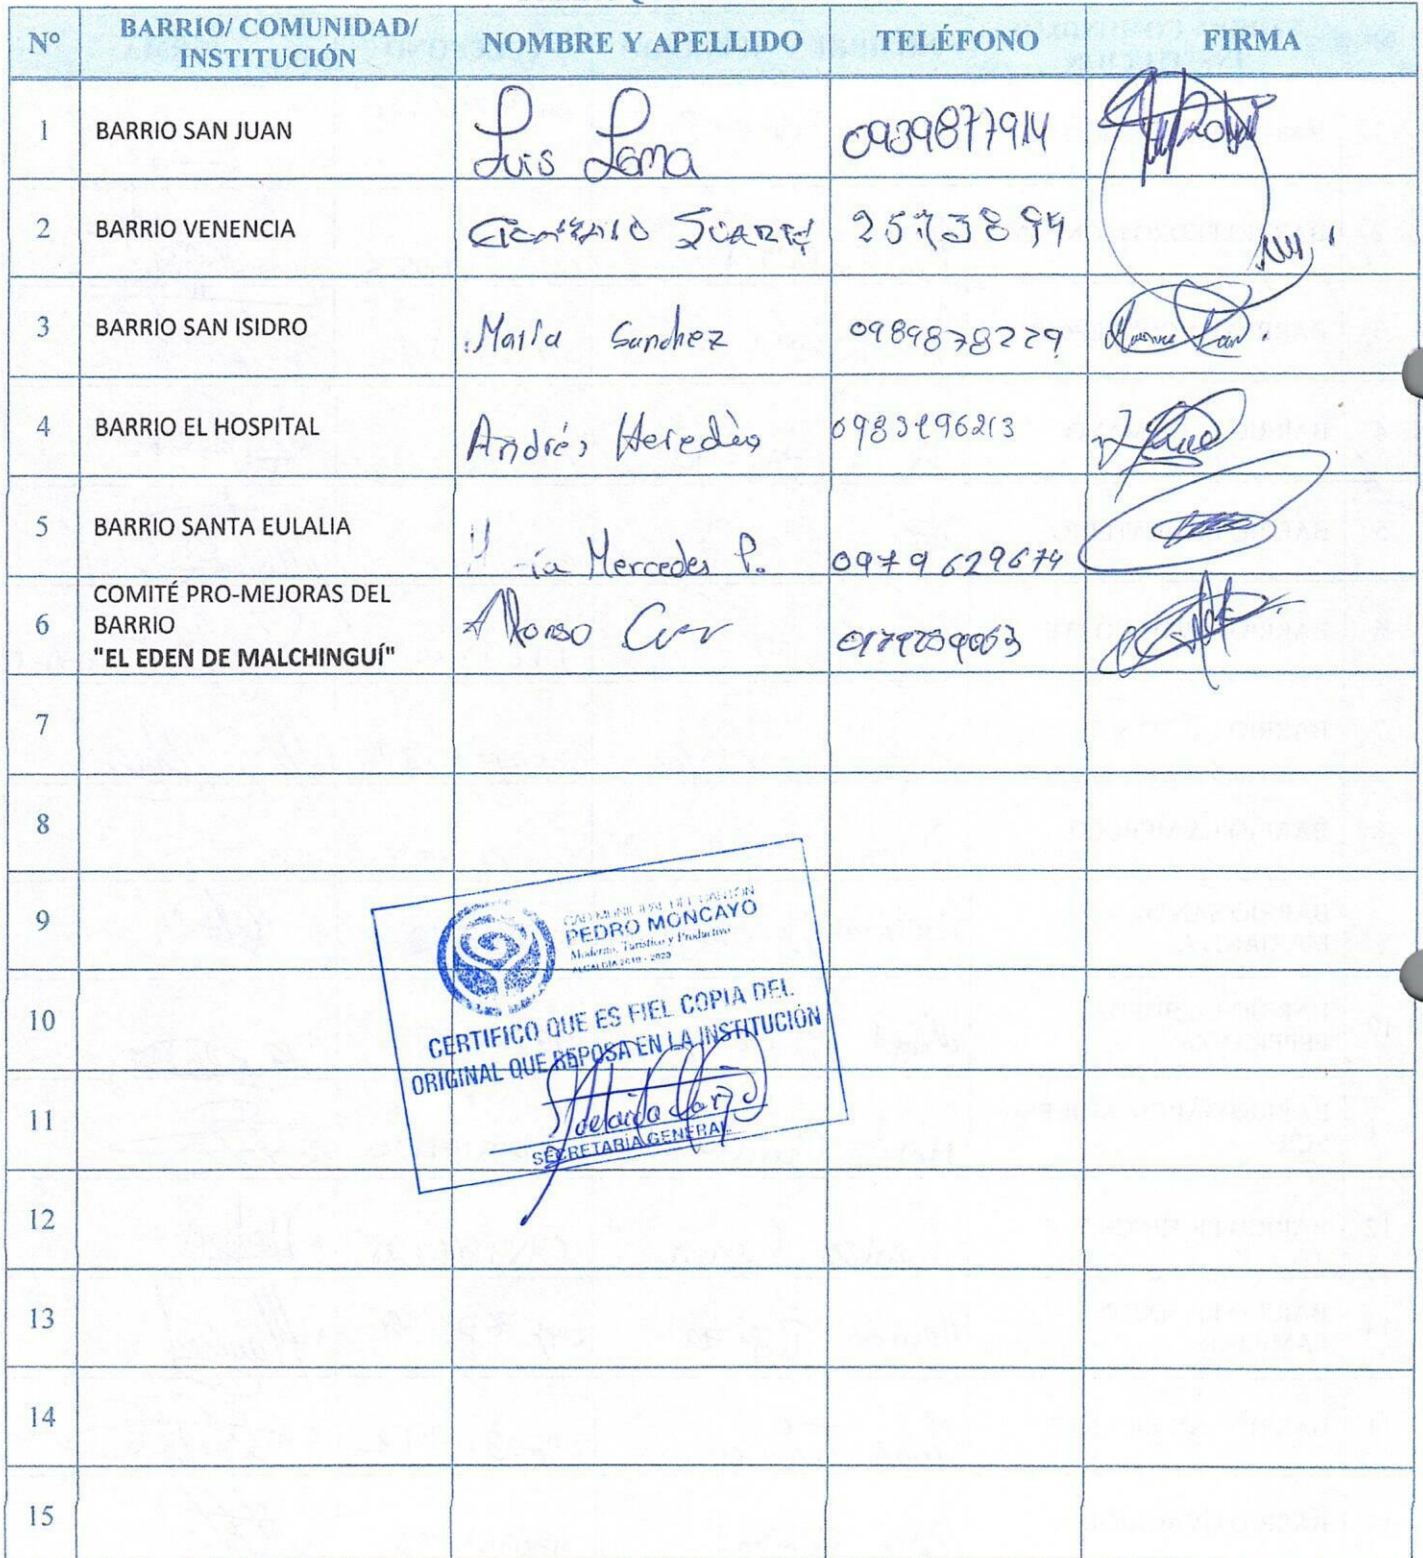 Nº BARRIO/ COMUNIDAD/ INSTITUCIÓN NOMBRE Y APELLIDO TELÉFONO FIRMA
1 BARRIO SAN JUAN Luis Loma 0939877914
2 BARRIO VENENCIA Gonzalo Suarez 2573894
3 BARRIO SAN ISIDRO María Sanchez 0989878229
4 BARRIO EL HOSPITAL Andrés Heredia
5 BARRIO SANTA EULALIA Mercedes P. 0979629674
COMITÉ PRO-MEJORAS DEL
6 BARRIO Alfonso
"EL EDEN DE MALCHINGUÍ"
7
8
9
GAD MUNICIPAL DEL CANTÓN
PEDRO MONCAYO
Moderno, Turístico y Productivo
ALCALDÍA 2019 - 2023
10
CERTIFICO QUE ES FIEL COPIA DEL
ORIGINAL QUE REPOSA EN LA INSTITUCIÓN
11
SECRETARÍA GENERAL
12
13
14
15